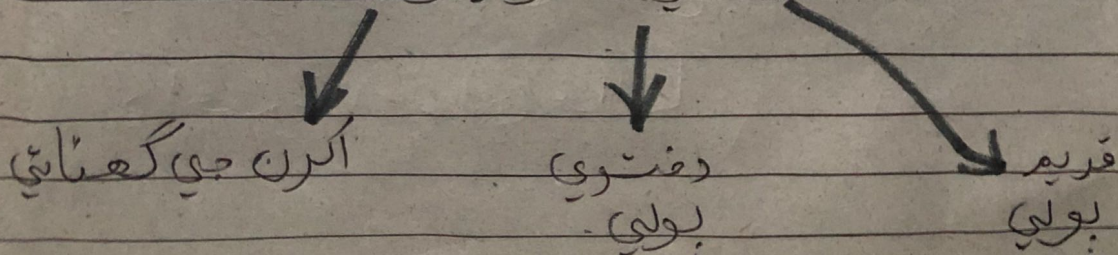 قديم
ٻولي
دفتري
ٻولي.
اکرن جي گهڻائي